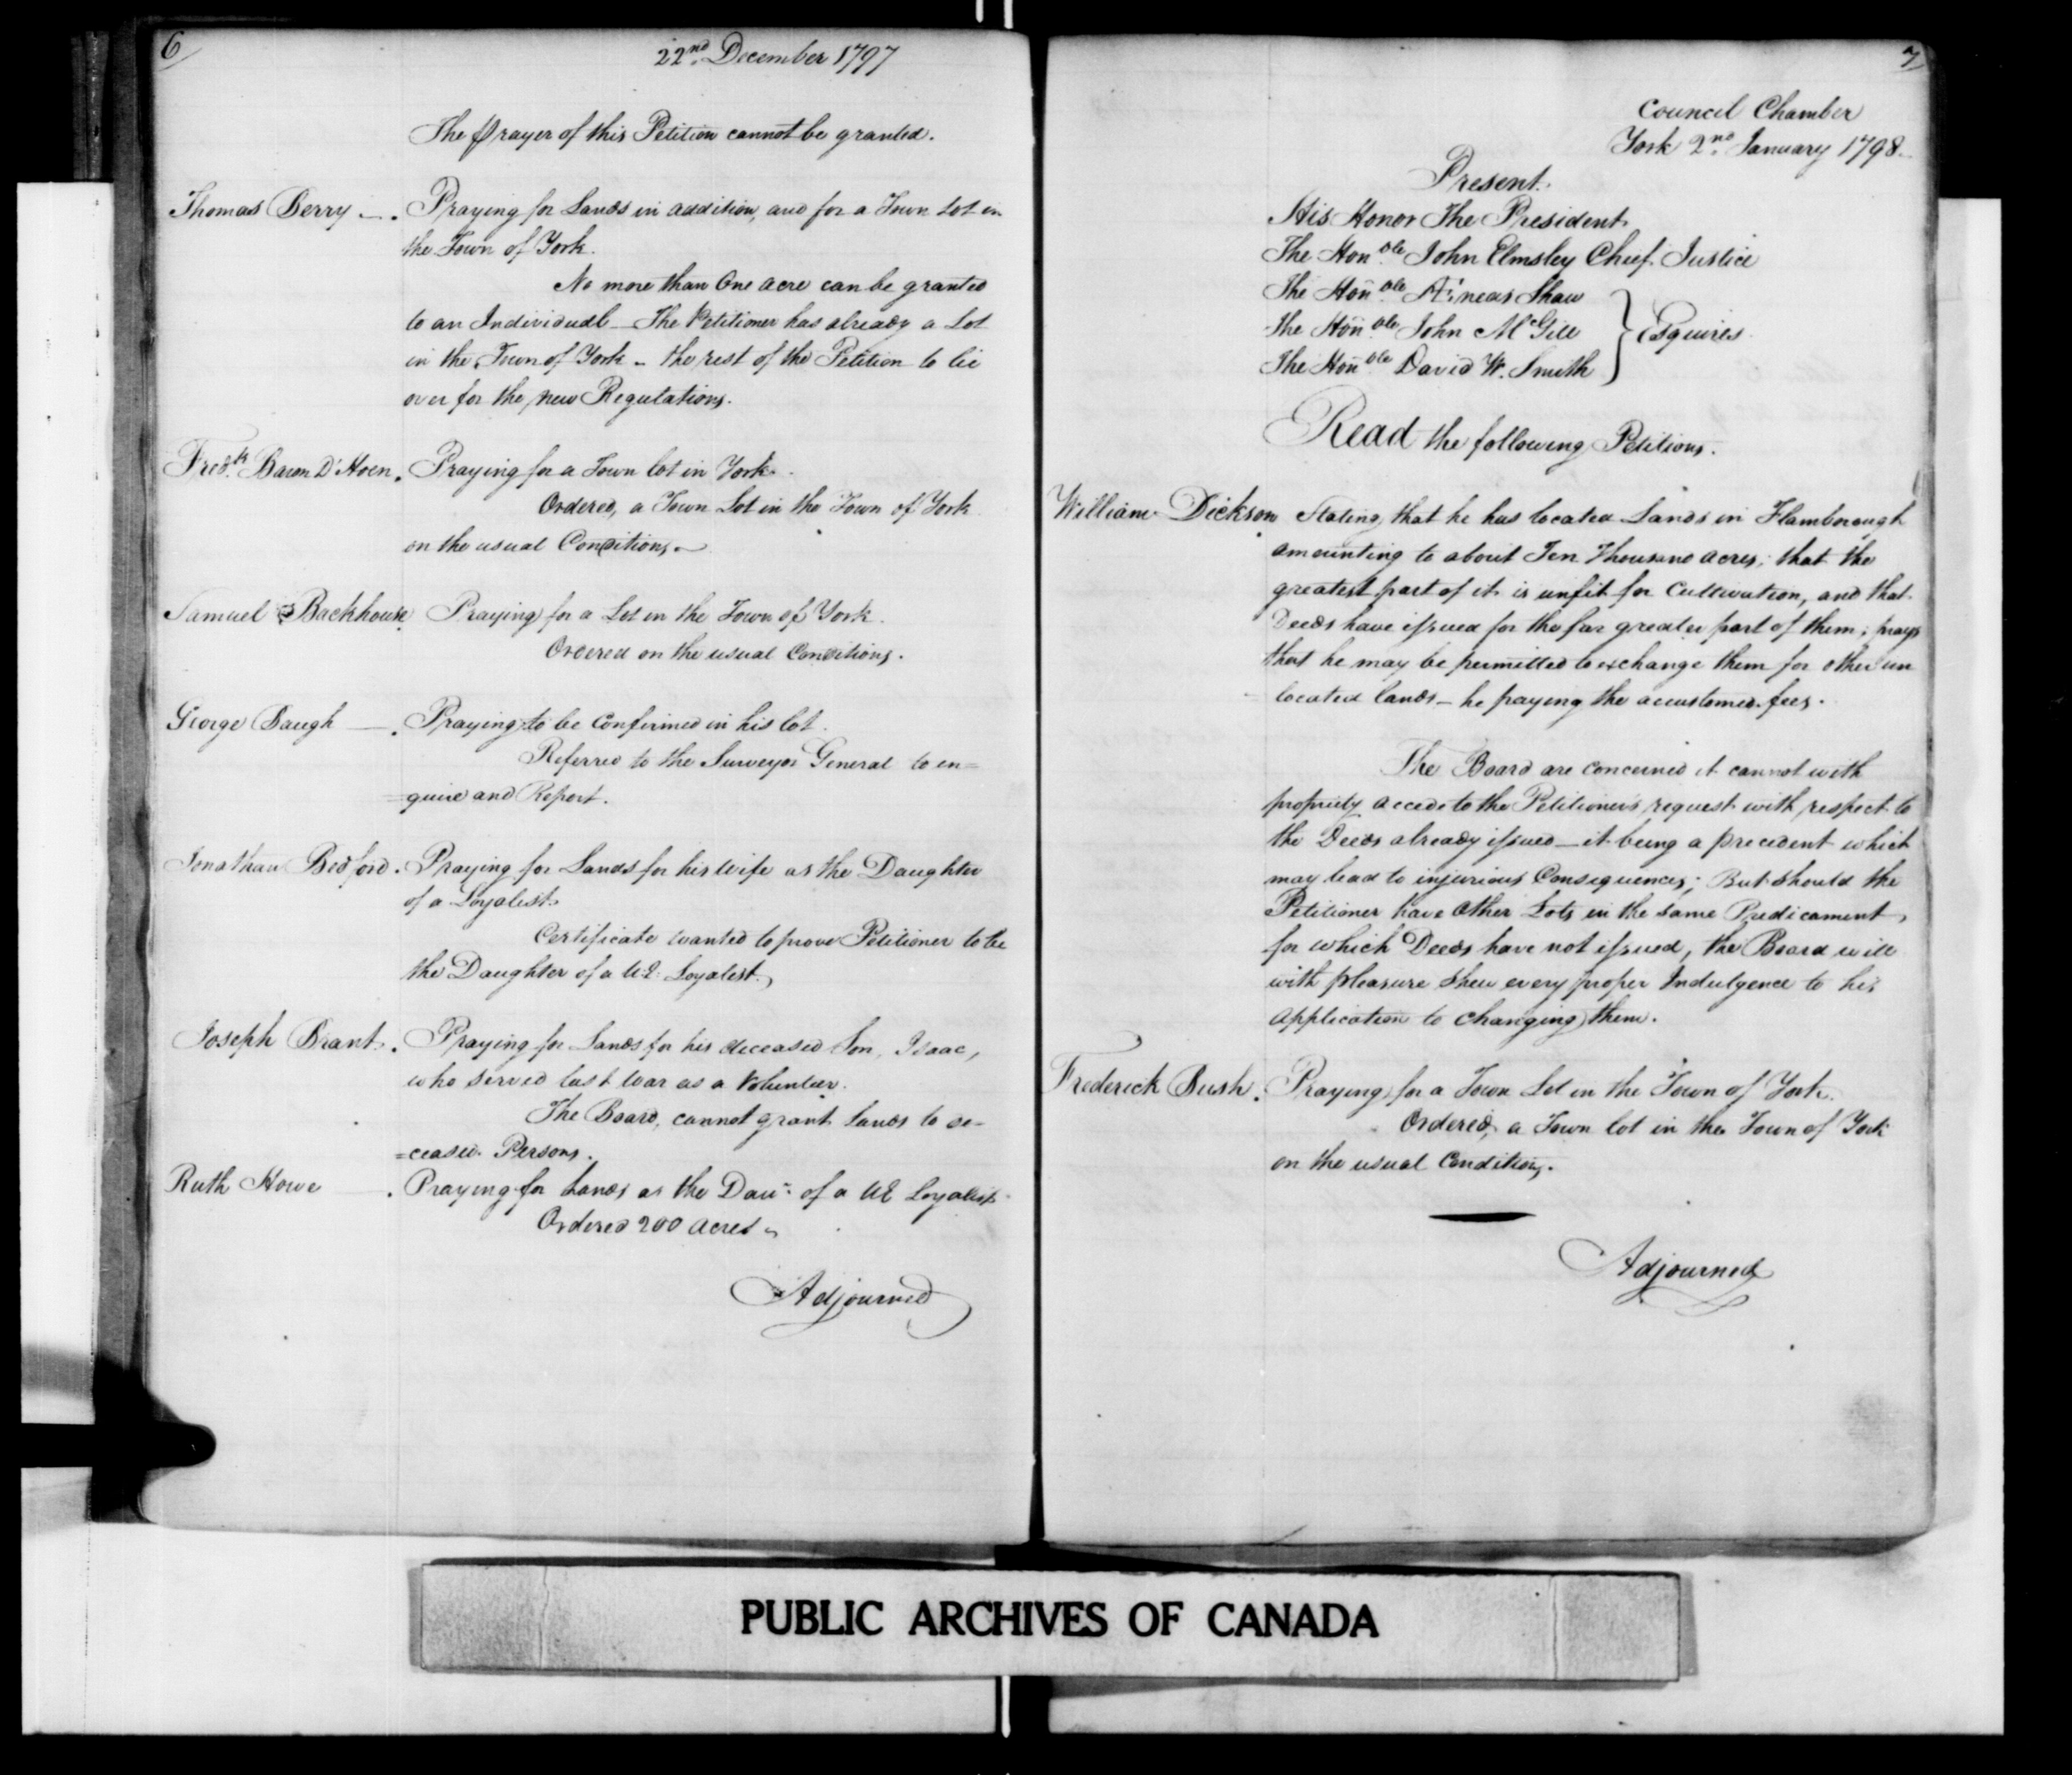 6
22nd. December 1797
The prayer of this Petition cannot be granted.
Thomas Berry — . Praying for Lands in addition, and for a Town Lot in
the Town of York.
No more than One acre can be granted
to an Individual — The Petitioner has already a Lot
in the Town of York – the rest of the Petition to lie
over for the new Regulations.
Fredk. Baron D'Hoen . Praying for a Town lot in York.
Ordered, a Town Lot in the Town of York
on the usual Conditions –
Samuel Backhouse . Praying for a Lot in the Town of York.
Ordered on the usual Conditions.
George Baugh — . Praying to be Confirmed in his lot.
Referred to the Surveyor General to en=
=quire and Report.
Jonathan Bedford . Praying for Lands for his Wife as the Daughter
of a Loyalist.
Certificate wanted to prove Petitioner to be
the Daughter of a UE Loyalist.
Joseph Brant . Praying for Lands for his deceased Son, Isaac,
who served last War as a Volunteer.
The Board, cannot grant Lands to de-
=ceased Persons.
Ruth Howe . Praying for Lands as the Daur. of a UE Loyalist
Ordered 200 Acres
Adjourned
7
Council Chamber
York 2nd. January 1798.
Present.
His Honor The President
The Honble John Elmsley Chief Justice
The Honble Æneas Shaw
The Honble John McGill } Esquires.
The Honble David W. Smith
Read the following Petitions.
William Dickson . Stating, that he has located Lands in Flamborough
amounting to about Ten Thousand acres; that the
greatest part of it is unfit for Cultivation, and that
Deeds have issued for the far greater part of them; prays
that he may be permitted to exchange them for other un
located lands – he paying the accustomed fees.
The Board are concerned it cannot with
propriety accede to the Petitioner's request with respect to
the Deeds already issued — it being a precedent which
may lead to injurious Consequences; But should the
Petitioner have Other Lots in the same Predicament,
for which Deeds have not issued, the Board will
with pleasure shew every proper Indulgence to his
application to changing them.
Frederick Bush . Praying for a Town Lot in the Town of York.
Ordered, a Town lot in the Town of York
on the usual Conditions.
Adjourned
PUBLIC ARCHIVES OF CANADA